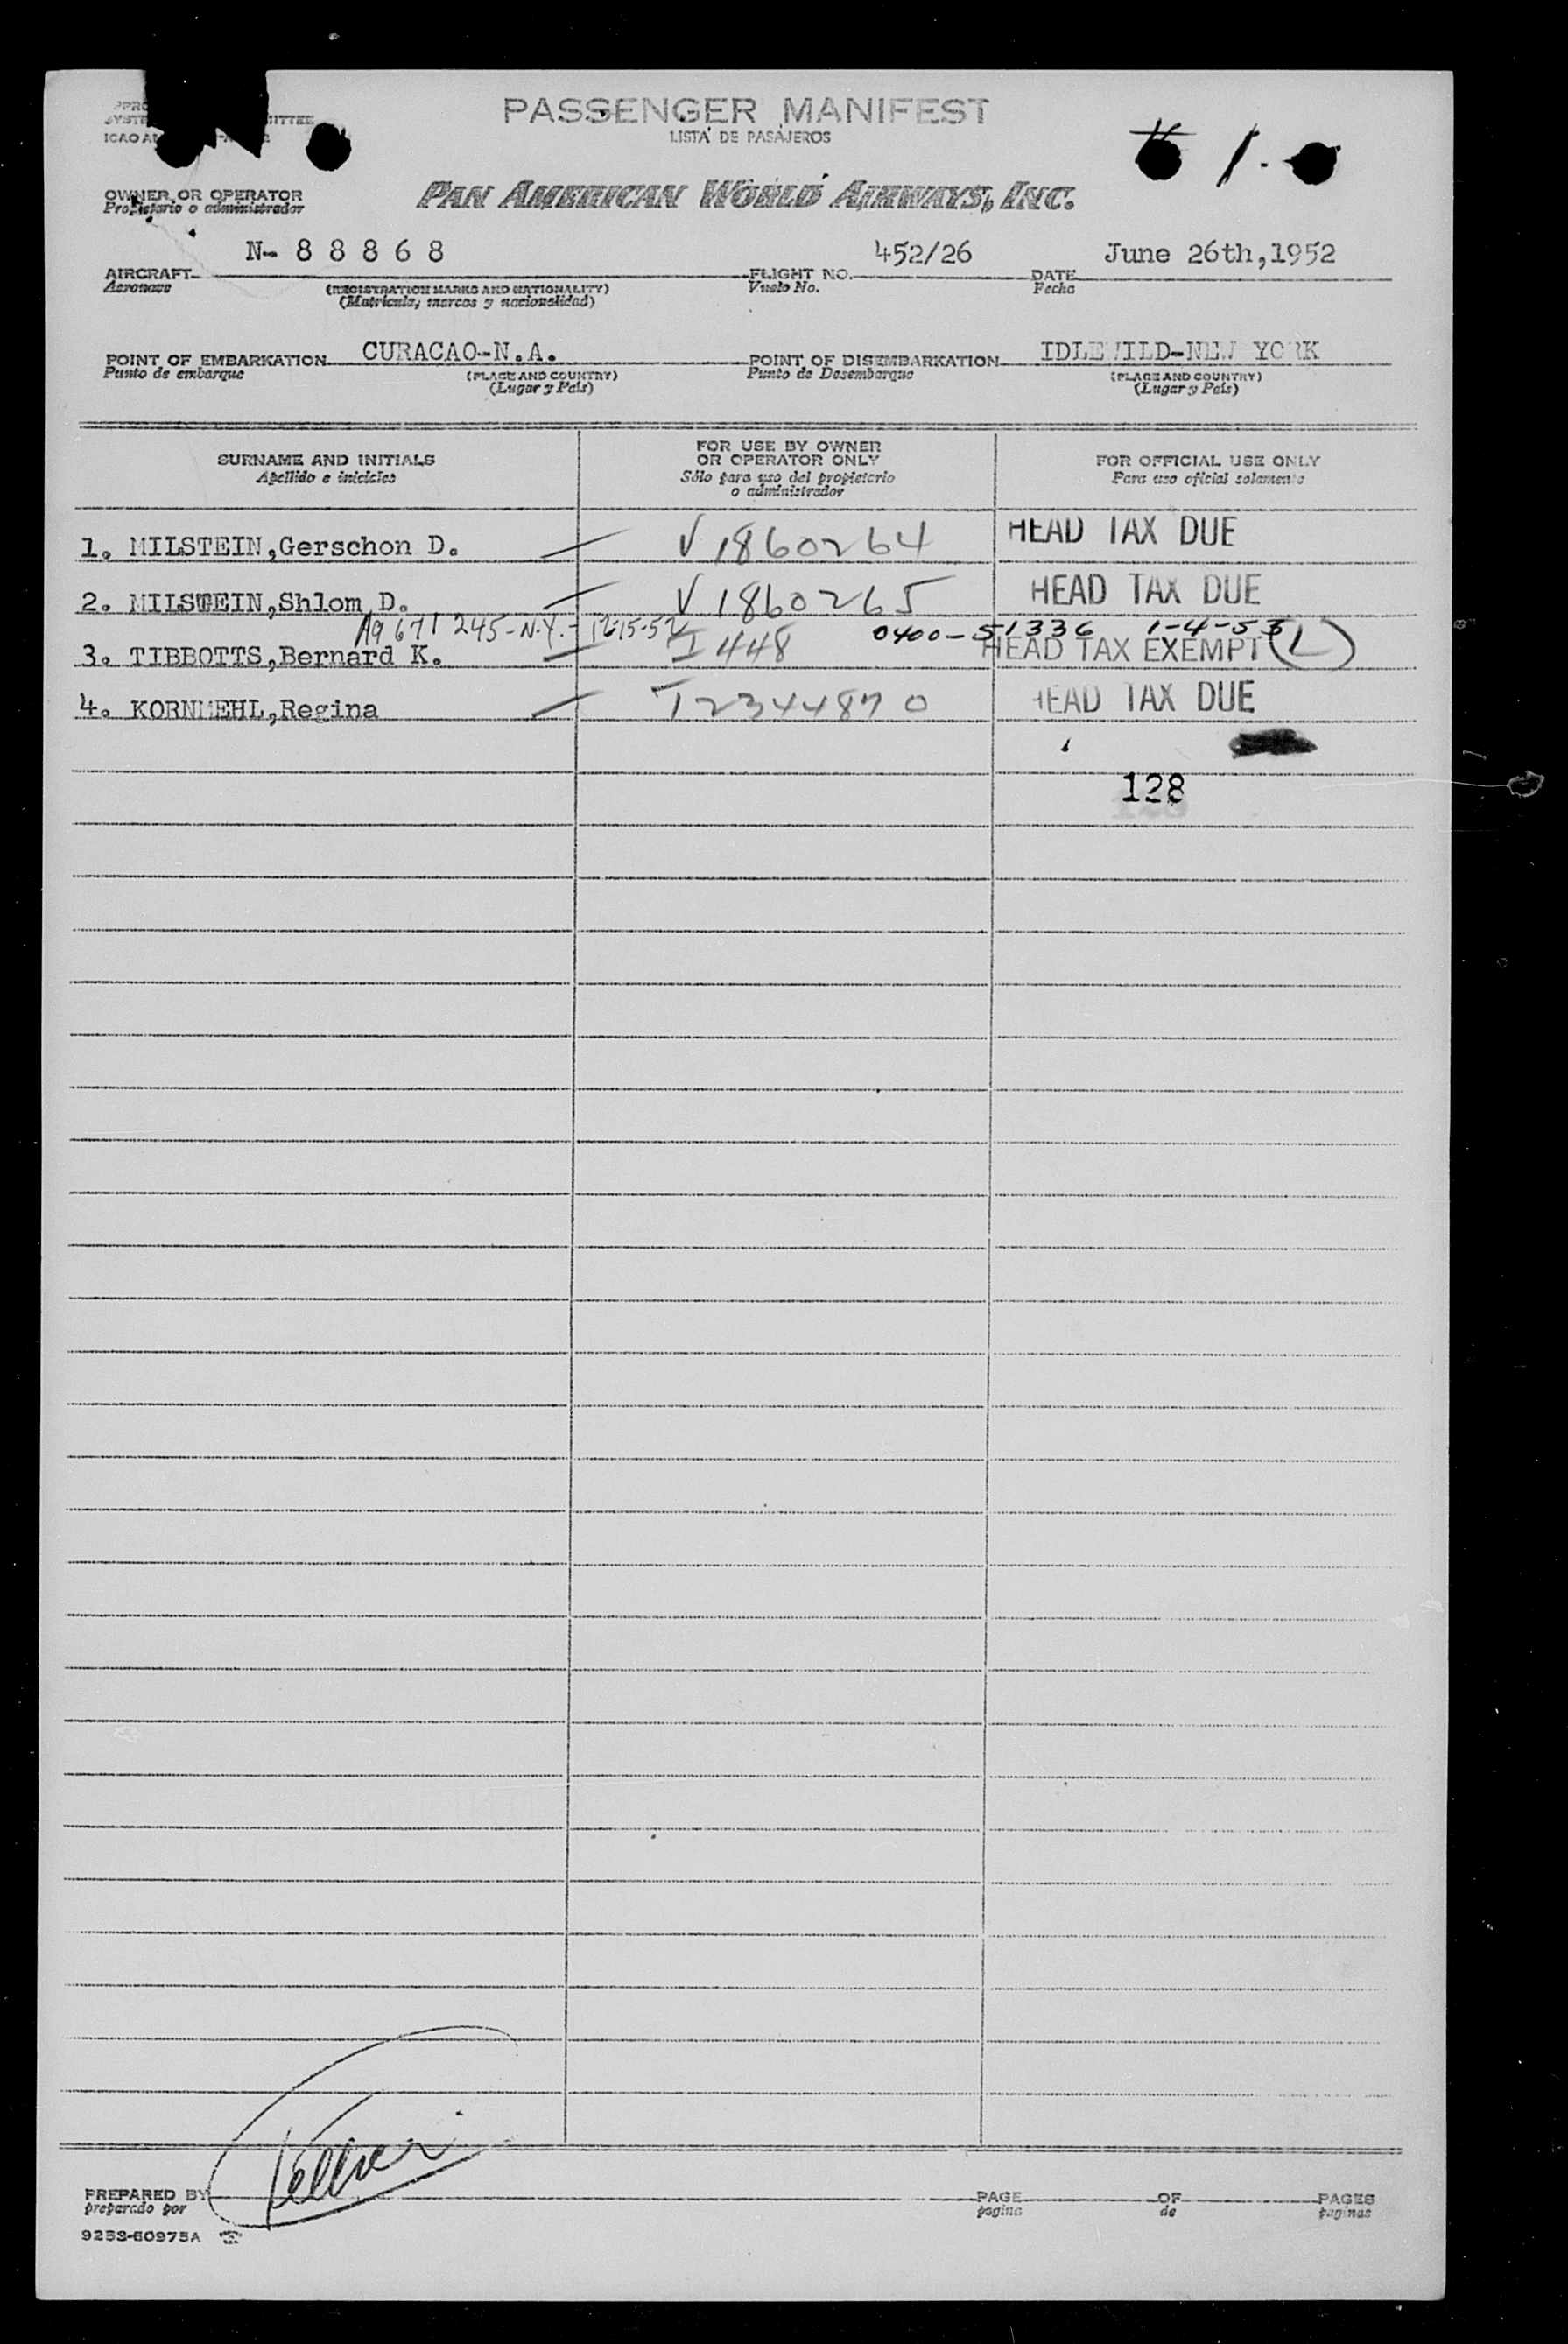 PASSENGER MANIFEST
LISTA DE PASAJEROS
1.
OWNER OR OPERATOR
Propietario o administrador
PAN AMERICAN WORLD AIRWAYS, INC.
N- 8 8 8 6 8 452/26 June 26th,1952
AIRCRAFT FLIGHT NO. DATE
Aeronave (REGISTRATION MARKS AND NATIONALITY) Vuelo No. Fecha
(Matricula, marcos y nacionalidad)
POINT OF EMBARKATION CURACAO-N.A. POINT OF DISEMBARKATION IDLEWILD-NEW YORK
Punto de embarque (PLACE AND COUNTRY) Punto de Desembarque (PLACE AND COUNTRY)
(Lugar y País) (Lugar y País)
SURNAME AND INITIALS
Apellido e iniciales
FOR USE BY OWNER
OR OPERATOR ONLY
Sólo para uso del propietario
o administrador
FOR OFFICIAL USE ONLY
Para uso oficial solamente
1. MILSTEIN,Gerschon D. V 1860264 HEAD TAX DUE
2. MILSTEIN,Shlom D. V 1860265 HEAD TAX DUE
A9 671 245-N.Y.- 12-15-52 0400-51336 1-4-53
3. TIBBOTTS,Bernard K. I 448 HEAD TAX EXEMPT (L)
4. KORNMEHL,Regina I2344870 HEAD TAX DUE
128
PREPARED BY PAGE OF PAGES
preparado por pagina de paginas
9253-60975A